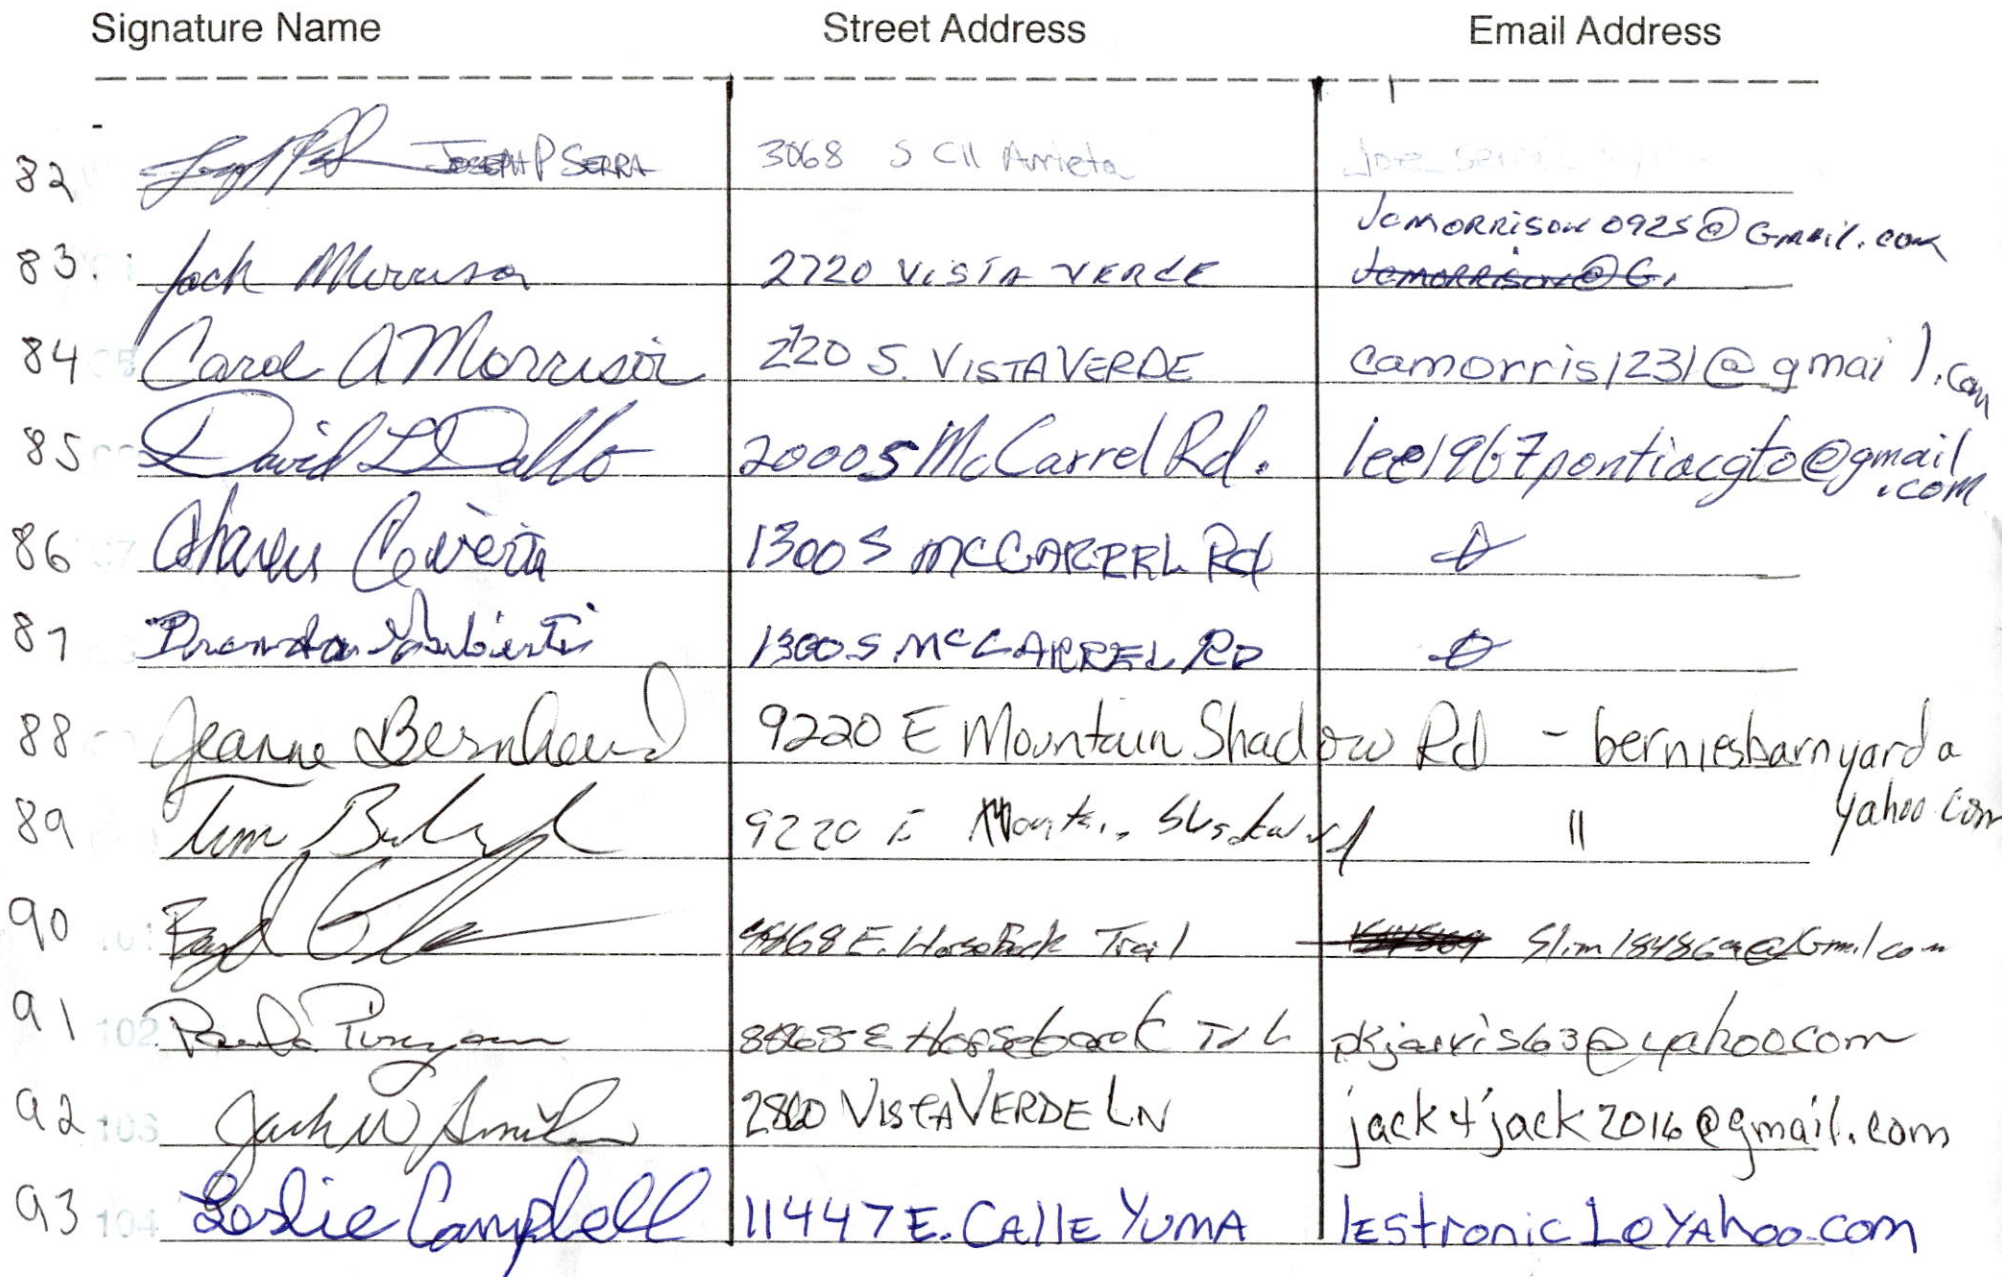 Signature Name Street Address Email Address
82 JOSEPH P SERRA 3068 S Cll Arrieta
JCMORRISON0925@Gmail.com
83. Jack Morrison 2720 VISTA VERDE JCMORRISON@G.
84 Carol A Morrison 2720 S. VISTA VERDE camorris1231@gmail.com
85 David L Dallo 2000 S McCarrel Rd. lee1967pontiacgto@gmail
.com
86 1300 S MCCARREL Rd
87 1300 S. MCCARREL RD
88 Jeanne Bernhard 9220 E Mountain Shadow Rd - berniesbarnyard@
yahoo.com
89 Tim 9220 E "
90 8868 E. HorseBack Trail Slim184869@Gmail.com
91 Paula 8868 E Horseback pkjarvis63@yahoo.com
92 Jack W 2860 VISTA VERDE LN jack4jack2016@gmail.com
93 Leslie Campbell 11447 E. CAllE YUMA lEstronic1@YAhoo.com